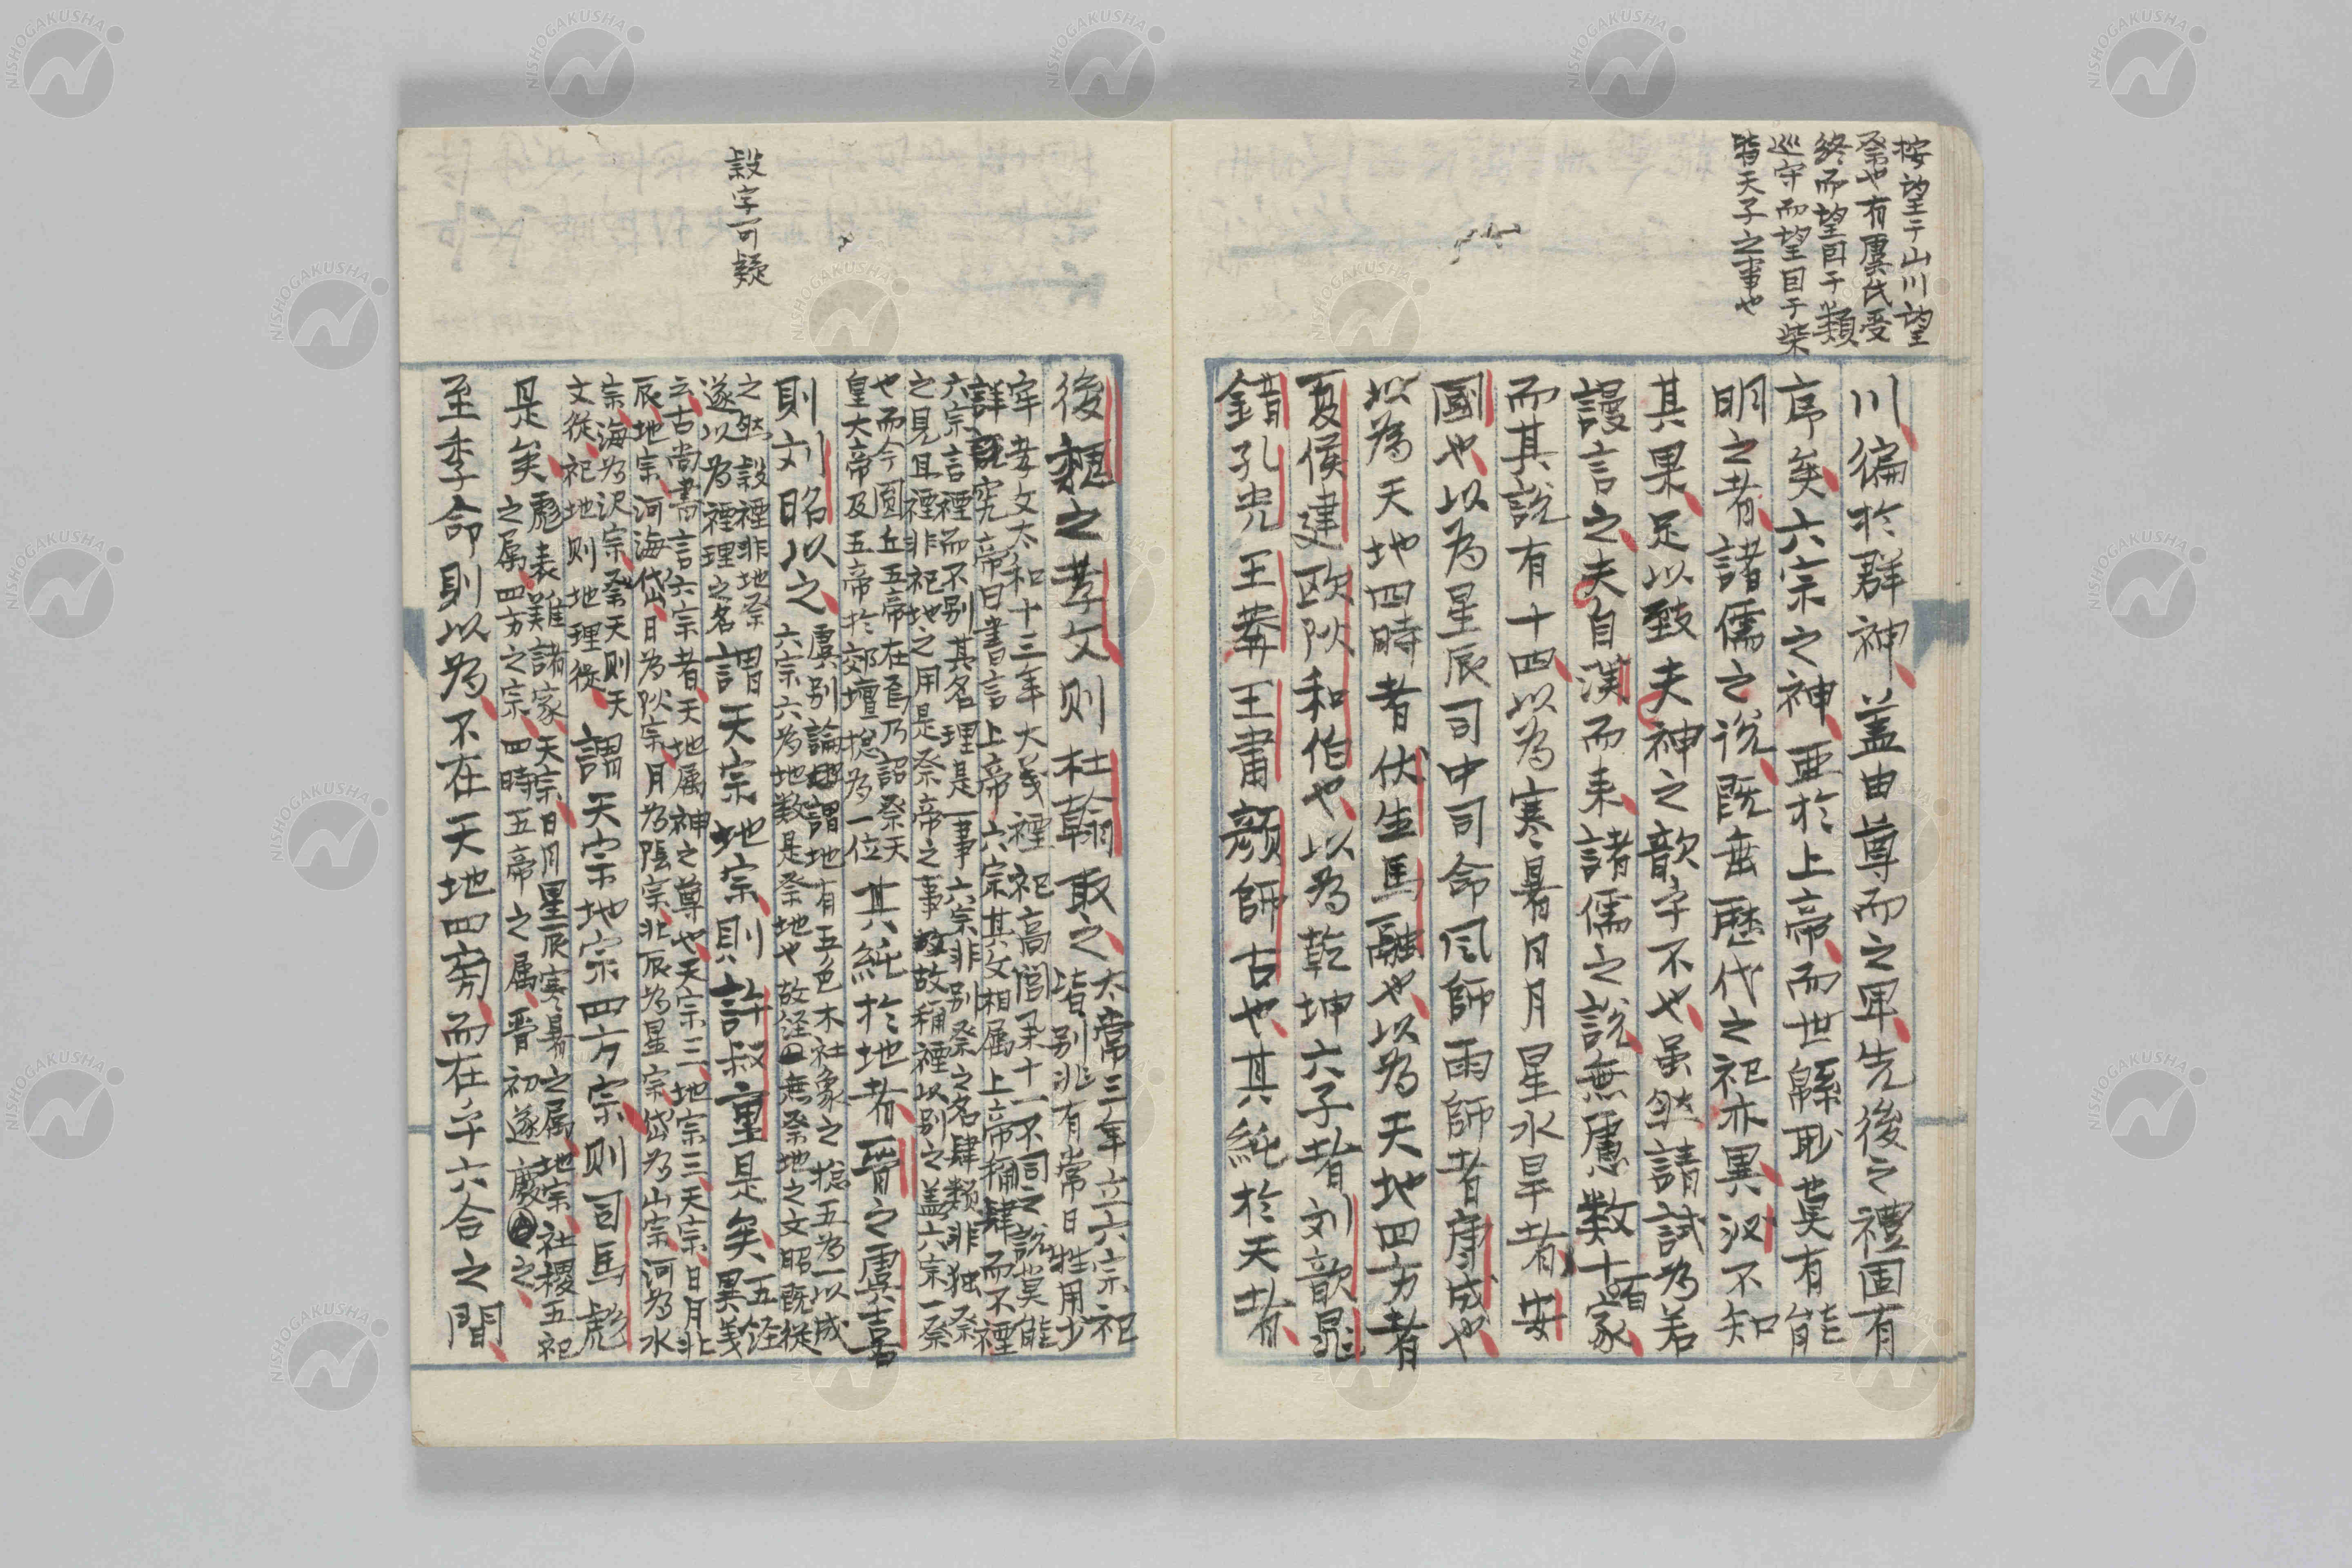 按望于山川望
祭也有虞氏受
終而望自于類
巡守而望自于柴
皆天子之事也
川徧於群神蓋由尊而之卑先後之禮固有
序矣六宗之神亜於上帝而世緜眇莫有能
明之者諸儒之説既無歴代之祀亦異汲不知
其果足以致夫神之歆乎不也虽然請試為若
謾言之夫自漢而来諸儒之説無慮数十百家
而其説有十四以為寒暑日月星水旱者安
國也以為星辰司中司命風師雨師者康成也
以為天地四時者伏生馬融也以為天地四方者
夏侯建欧陽和伯也以為乾坤六子者刘歆晁
錯孔光王莽王肅顔師古也其純於天者
後魏之孝文則杜翰取之
太常三年立六宗祀
皆別兆有常日牲用少
牢孝文太和十三年大義禋祀高閭等十一不同之説莫能
詳究帝曰書言上帝六宗其文相属上帝称肆而不禋
六宗言禋而不別其名理是一事六宗非別祭之名肆類非独祭
之見且禋非祀地之用是祭帝之事故称禋以別之蓋六宗一祭
也而今圓丘五帝在焉乃詔祭天
皇大帝及五帝於郊壇揔為一位
其純於地者晋之虞喜
則刘昭以之
虞別論謂地有五色木社象之揔五為一以成
六宗六為地数是祭地也故経無祭地之文昭既従
之然設禋非地祭
遂以為禋理之名
謂天宗地宗則許叔重是矣
五経
異義
云古尚書言六宗者天地属神之尊也天宗三地宗三天宗日月北
辰地宗河海岱日為陽宗月為陰宗北辰為星宗岱為山宗河為水
宗海為沢宗祭天則天
文従祀地則地理従
謂天宗地宗四方宗則司馬彪
是矣
彪表難諸家天宗日月星辰寒暑之属地宗社稷五祀
之属四方之宗四時五帝之属晋初遂廢之
至李郃則以為不在天地四旁而在乎六合之間
設字可疑